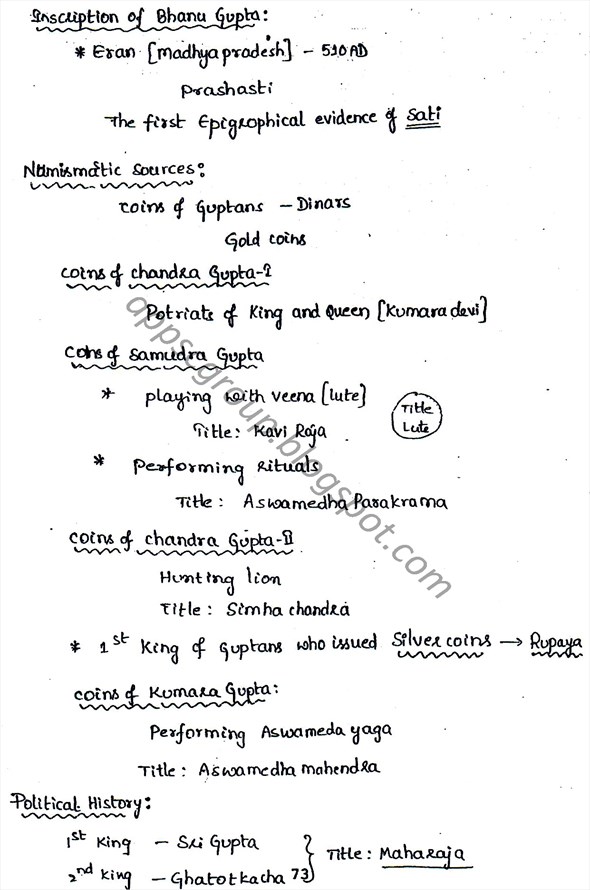 Inscription of Bhanu Gupta:
* Eran [Madhya pradesh] - 510 AD
Prashasti
The first Epigrophical evidence of Sati
Numismatic Sources:
coins of Guptans - Dinars
Gold coins
coins of chandra Gupta-I
Potriats of King and Queen [Kumara devi]
Coins of Samudra Gupta
* playing with veena [lute]
Title: Kavi Raja
Title
Lute
* Performing Rituals
Title: Aswamedha Parakrama
coins of chandra Gupta-II
Hunting lion
Title: Simha chandra
* 1st King of Guptans who issued Silver coins → Rupaya
coins of Kumara Gupta:
Performing Aswameda yaga
Title: Aswamedha mahendra
Political History:
1st King - Sri Gupta
2nd King - Ghatotkacha 73
} Title: Maharaja
apps-group.blogspot.com